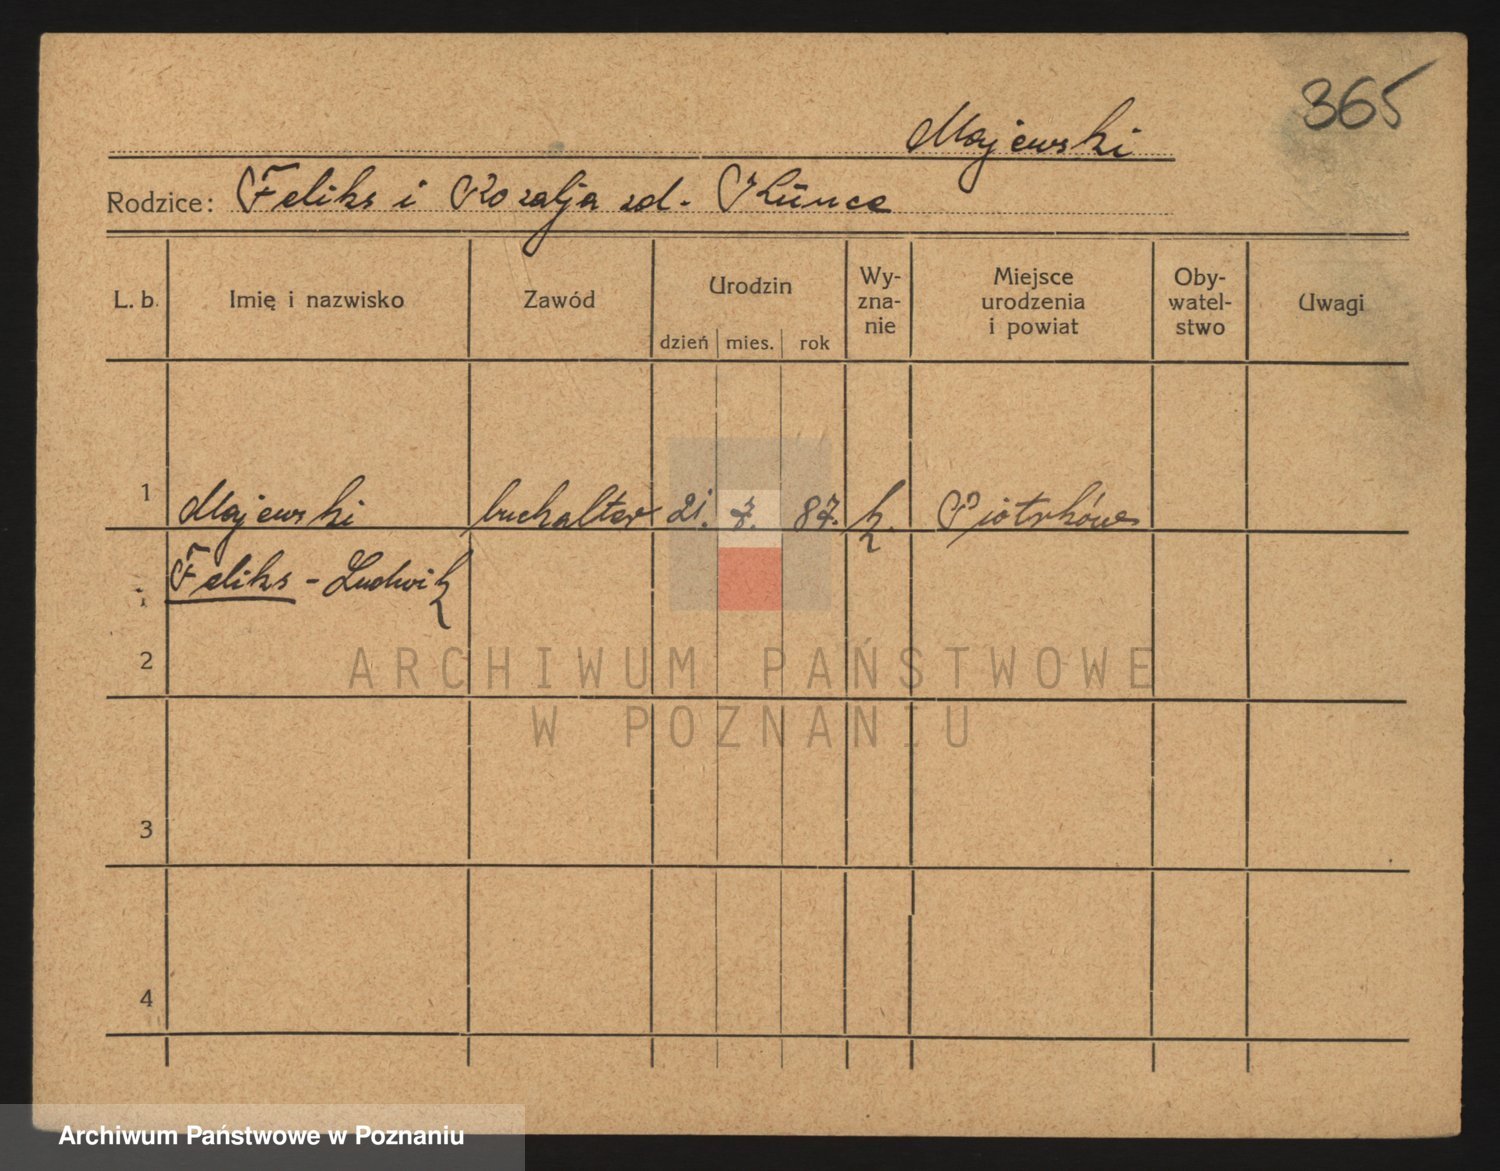 365
Majewski
Rodzice: Feliks i Rozalja zd. Künce
L. b. Imię i nazwisko Zawód Urodzin dzień mies. rok Wy-zna-nie Miejsce urodzenia i powiat Oby-watel-stwo Uwagi
1 Majewski buchalter 21. 7. 87. k. Piotrków
Feliks - Ludwik
2
3
4
ARCHIWUM PAŃSTWOWE
W POZNANIU
Archiwum Państwowe w Poznaniu